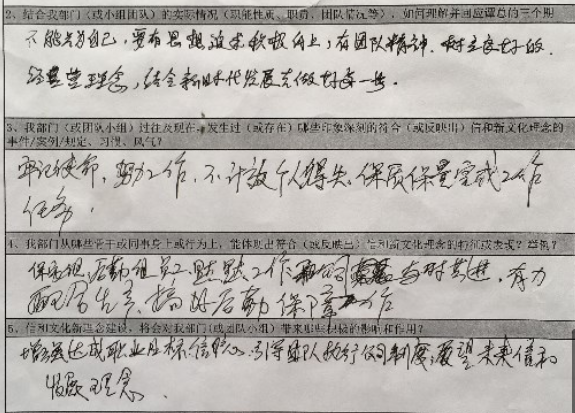 2、结合我部门（或小组团队）的实际情况（职能性质、职责、团队情况等），如何理解并回应谭总的三个期
不能只为自己，要有思想追求积极向上，有团队精神，树立良好的
经营管理念，结合新时代发展先做好每一步。
3、我部门（或团队小组）过往及现在，发生过（或存在）哪些印象深刻的符合（或反映出）信和新文化理念的
事件/案例/规定、习惯、风气？
牢记使命，努力工作，不计较个人得失，保质保量完成工作
任务。
4、我部门从哪些骨干或同事身上或行为上，能体现出符合（或反映出）信和新文化理念的特征或表现？举例？
保洁组，后勤组员工，默默工作 与时共进，有力
配合生产，搞好后勤保障工作
5、信和文化新理念建设，将会对我部门（或团队小组）带来哪些积极的影响和作用？
增强达成职业目标信心，引导团队执行公司制度，展望未来信和
发展理念、